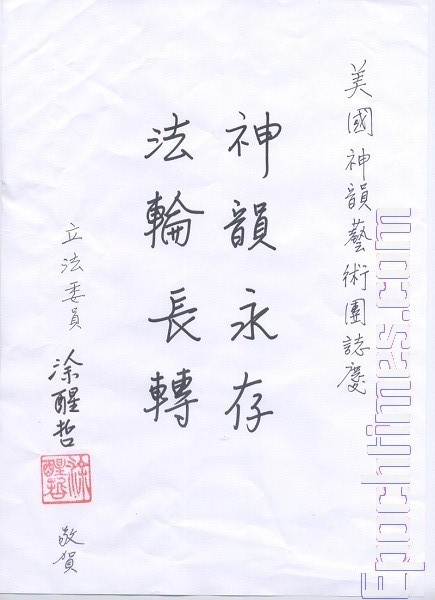 美國神韻藝術團誌慶
神韻永存
法輪長轉
立法委員 涂醒哲
涂醒哲
敬賀
Epochtimes.com